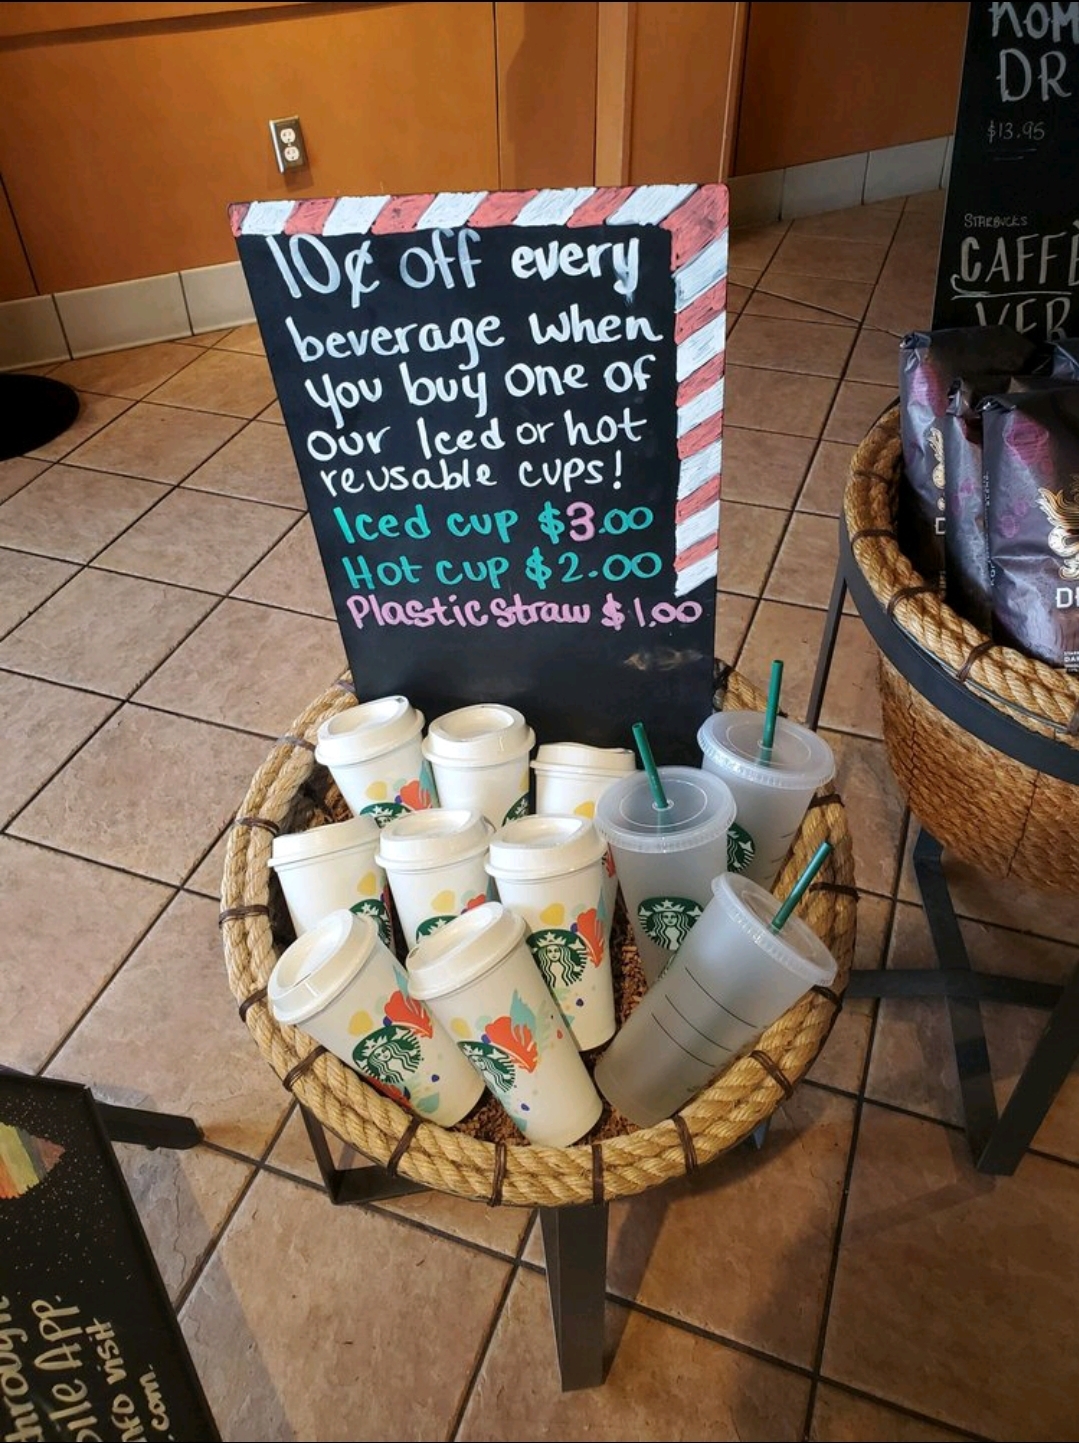 10¢ off every
beverage when
you buy one of
our Iced or hot
reusable cups!
Iced cup $3.00
Hot cup $2.00
Plastic straw $1.00
DR
$13.95
STARBUCKS
CAFFÈ
VER
D
through
ile APP.
nfo visit
.com.